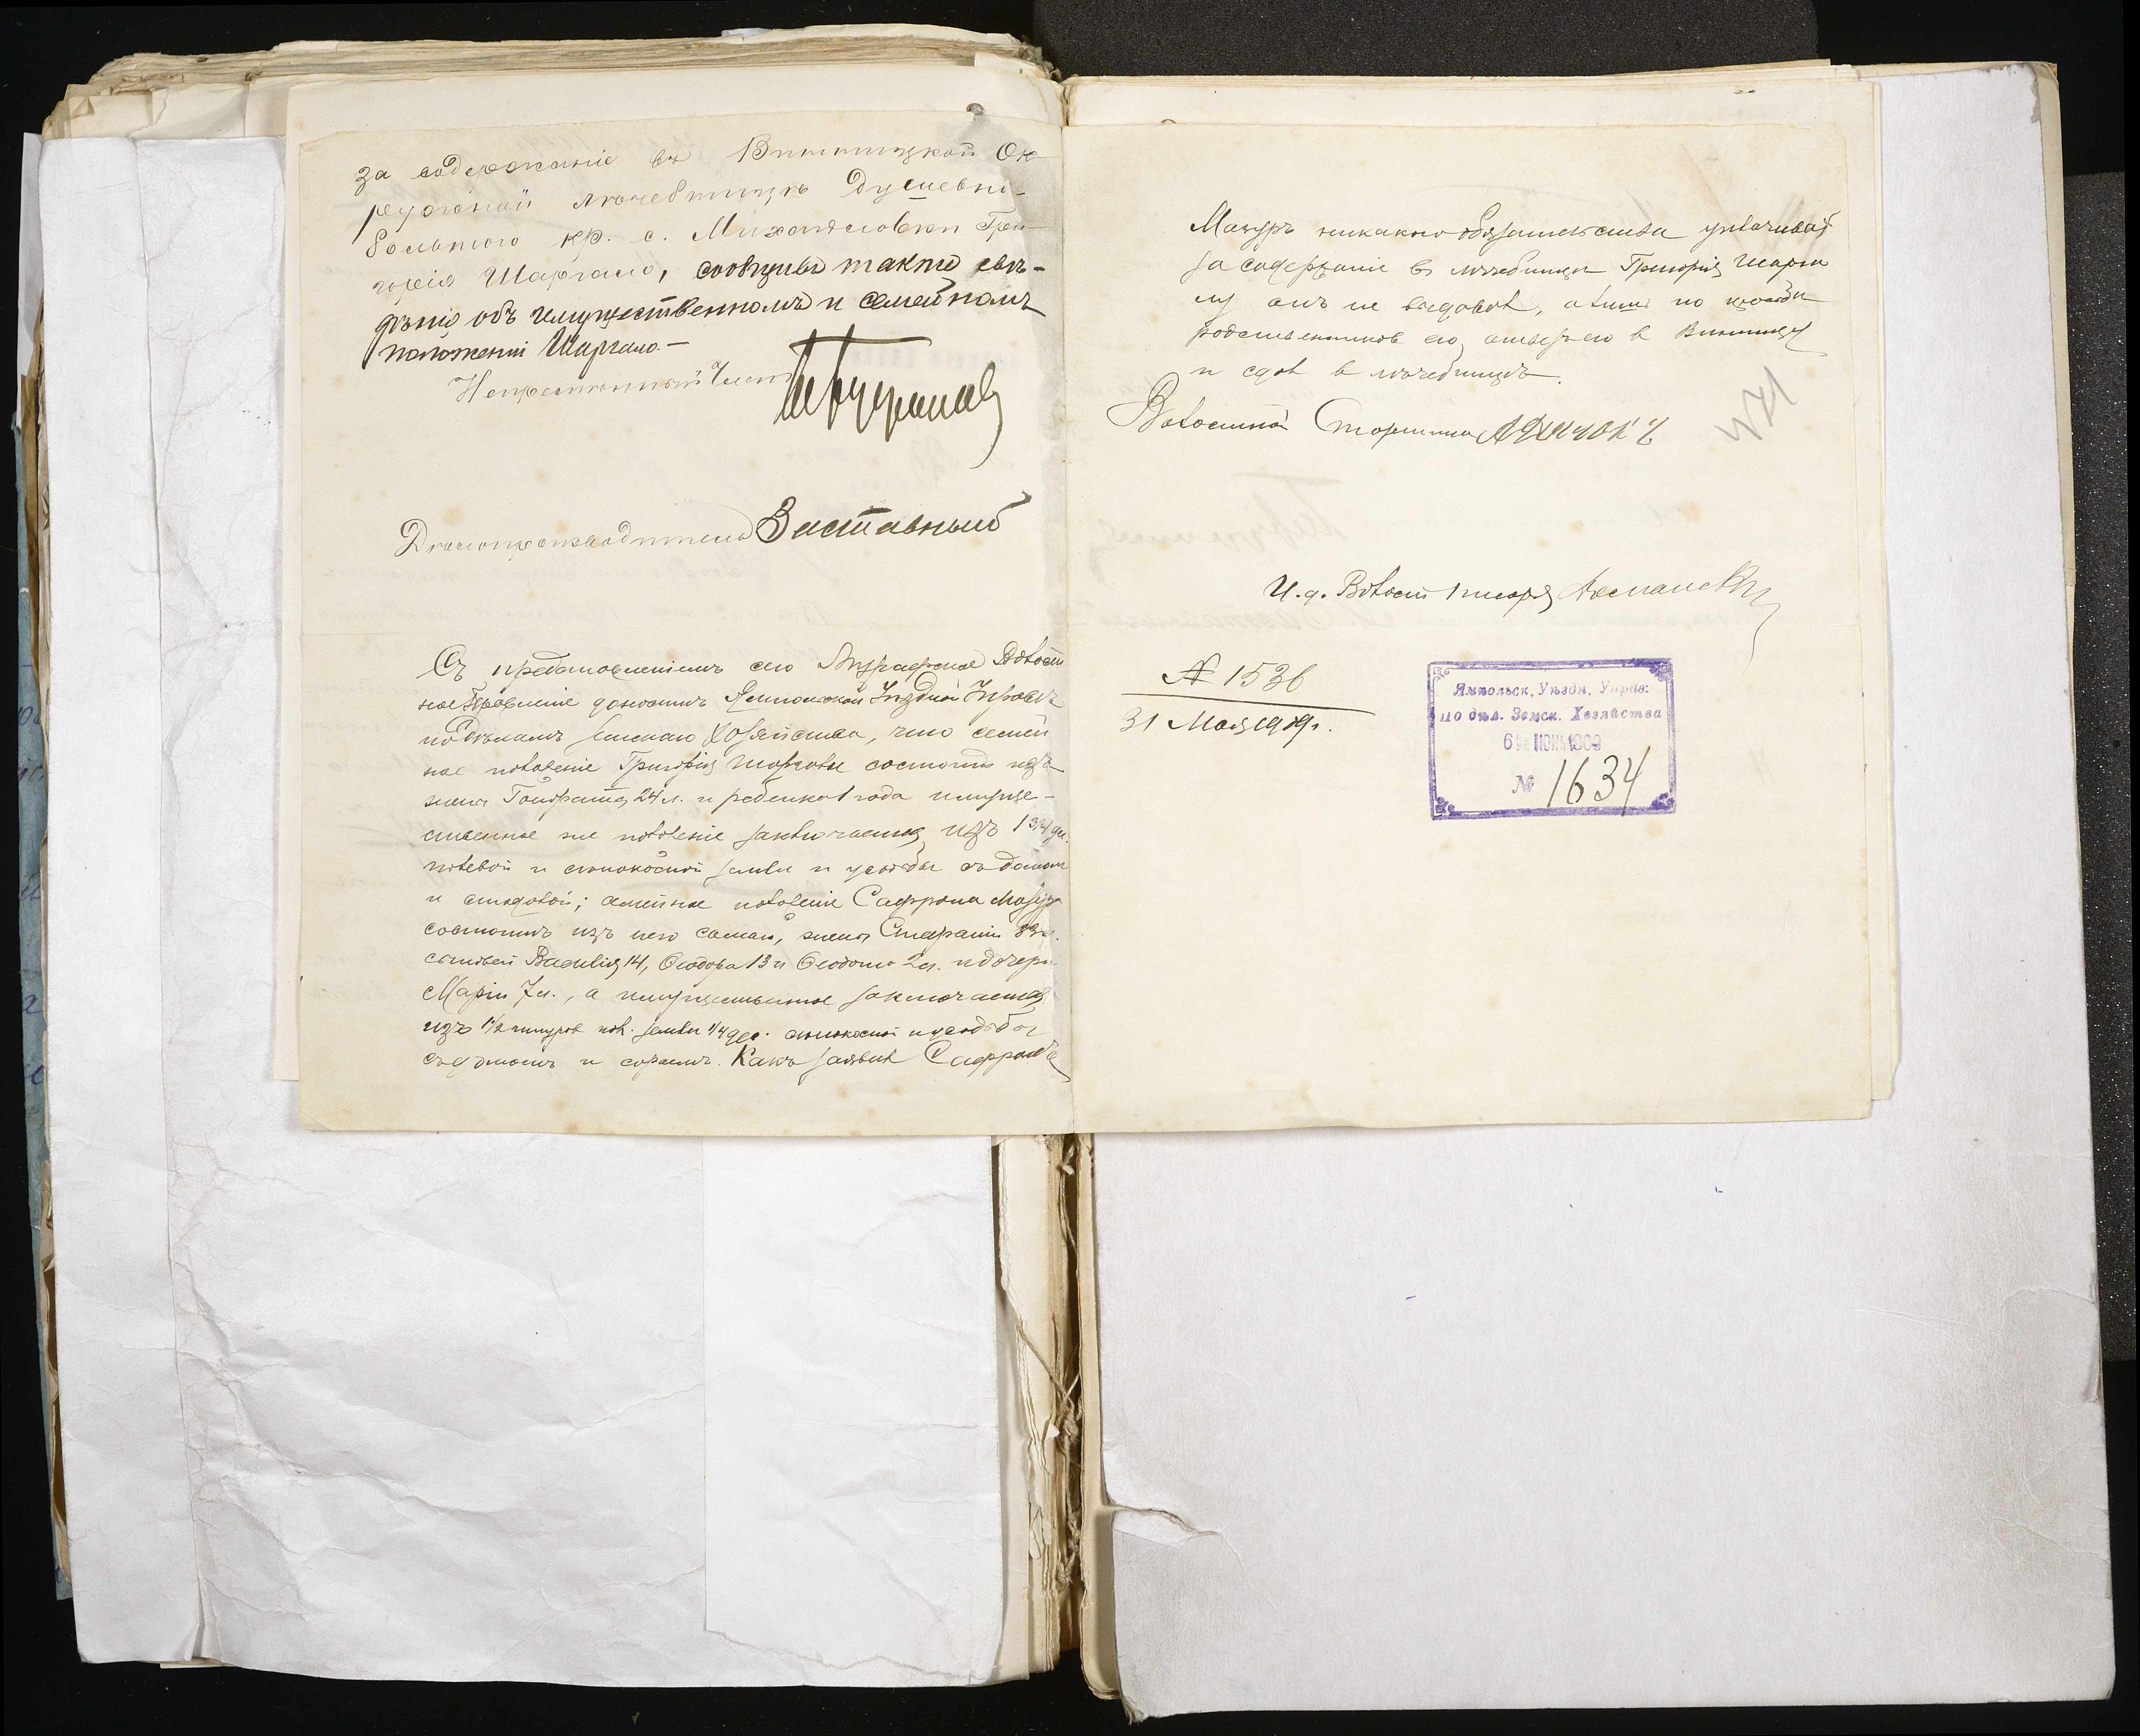 за содержаніе въ Винницкой Ок-
ружной лѣчебницѣ душевно-
больного кр. с. Михайловки Гри-
горія Шаргало, сообщивъ также свѣ-
дѣнія объ имущественномъ и семейномъ
положеніи Шаргало.-
Непремѣнный Членъ
Дѣлопроизводитель Заставный
Съ представленіемъ сего Волост
ное Правленіе доноситъ Ямпольской Уѣздной Управѣ
по дѣламъ Земскаго Хозяйства, что семей
ное положеніе Григорія Шаргалы состоитъ изъ
жены 24 л. и ребенка 1 года имуще-
ственное же положеніе заключается изъ 1 3/4 дес.
полевой и сѣнокосной земли и усадьбы съ домомъ
и стодолой; семейное положеніе Сафрона Мазура
состоитъ изъ него самаго, жены
сыновей Василія 14, Ѳеодора 13 и Ѳеодота 2 л. и дочери
Маріи 7 л., а имущественное заключается
изъ 1 1/2 пол. земли 1/4 дес. сѣнокосной и усадьбы
съ домомъ и сараемъ. Какъ заявилъ Сафронъ
Мазуръ никакого обязательства уплачивать
за содержаніе въ лѣчебницѣ Григорія Шарга
лу онъ не выдавалъ, а лишь по просьбѣ
родственниковъ его, отвезъ его в Винницу
и сдалъ в лѣчебницу.
Волостной Старшина
171
И. д. Волост писаря
№ 1536
31 Мая 1909 г.
Ямпольск. Уѣздн. Управ:
по дѣл. Земск. Хозяйства
6 ІЮН 1909
№ 1634